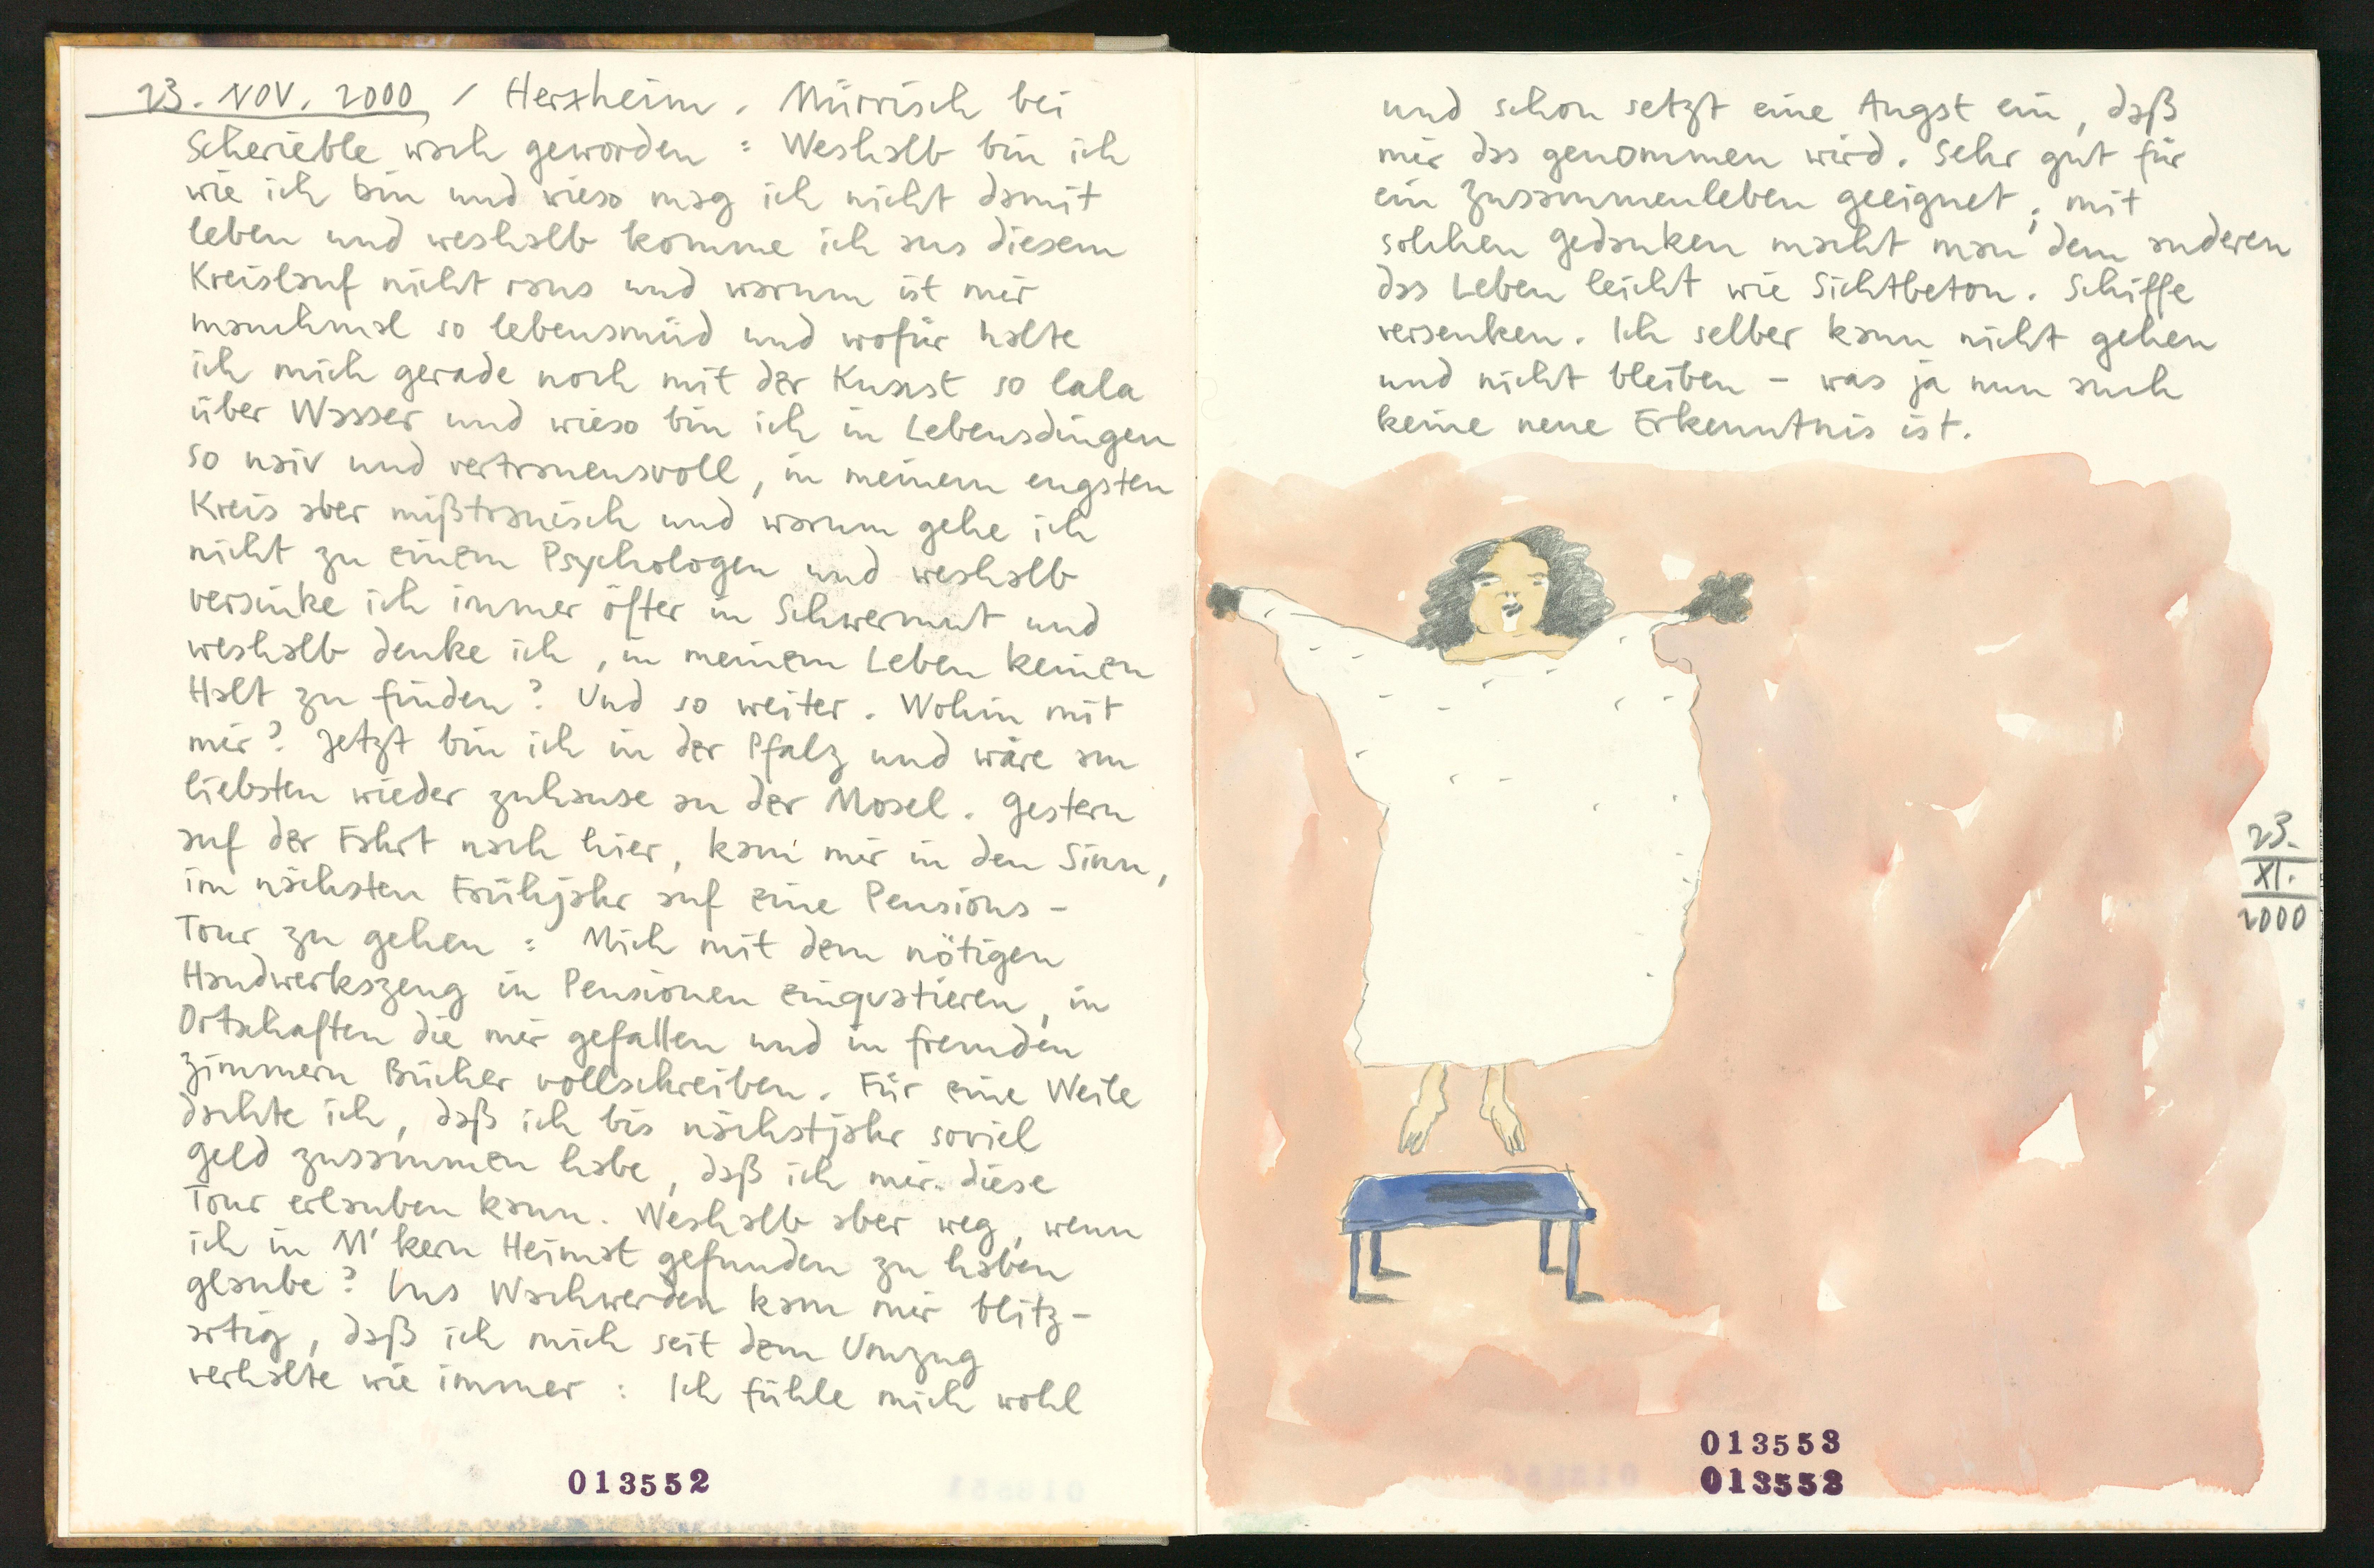 23. NOV. 2000 / Herxheim. Mürrisch bei
Scherieble wach geworden: Weshalb bin ich
wie ich bin und wieso mag ich nicht damit
leben und weshalb komme ich aus diesem
Kreislauf nicht raus und warum ist mir
manchmal so lebensmüd und wofür halte
ich mich gerade noch mit der Kunst so lala
über Wasser und wieso bin ich in Lebensdingen
so naiv und vertrauensvoll, in meinem engsten
Kreis aber mißtrauisch und warum gehe ich
nicht zu einem Psychologen und weshalb
versinke ich immer öfter in Schwermut und
weshalb denke ich, in meinem Leben keinen
Halt zu finden? Und so weiter. Wohin mit
mir? Jetzt bin ich in der Pfalz und wäre am
liebsten wieder zuhause an der Mosel. Gestern
auf der Fahrt nach hier, kam mir in den Sinn,
im nächsten Frühjahr auf eine Pensions-
Tour zu gehen: Mich mit dem nötigen
Handwerkszeug in Pensionen einquatieren, in
Ortschaften die mir gefallen und in fremden
Zimmern Bücher vollschreiben. Für eine Weile
dachte ich, daß ich bis nächstjahr soviel
Geld zusammen habe, daß ich mir diese
Tour erlauben kann. Weshalb aber weg, wenn
ich in M'kern Heimat gefunden zu haben
glaube? Ins Wachwerden kam mir blitz-
artig, daß ich mich seit dem Umzug
verhalte wie immer: Ich fühle mich wohl
013552
und schon setzt eine Angst ein, daß
mir das genommen wird. Sehr gut für
ein Zusammenleben geeignet; mit
solchen Gedanken macht man dem anderen
das Leben leicht wie Sichtbeton. Schiffe
versenken. Ich selber kann nicht gehen
und nicht bleiben – was ja nun auch
keine neue Erkenntnis ist.
23.
XI.
2000
013553
013553